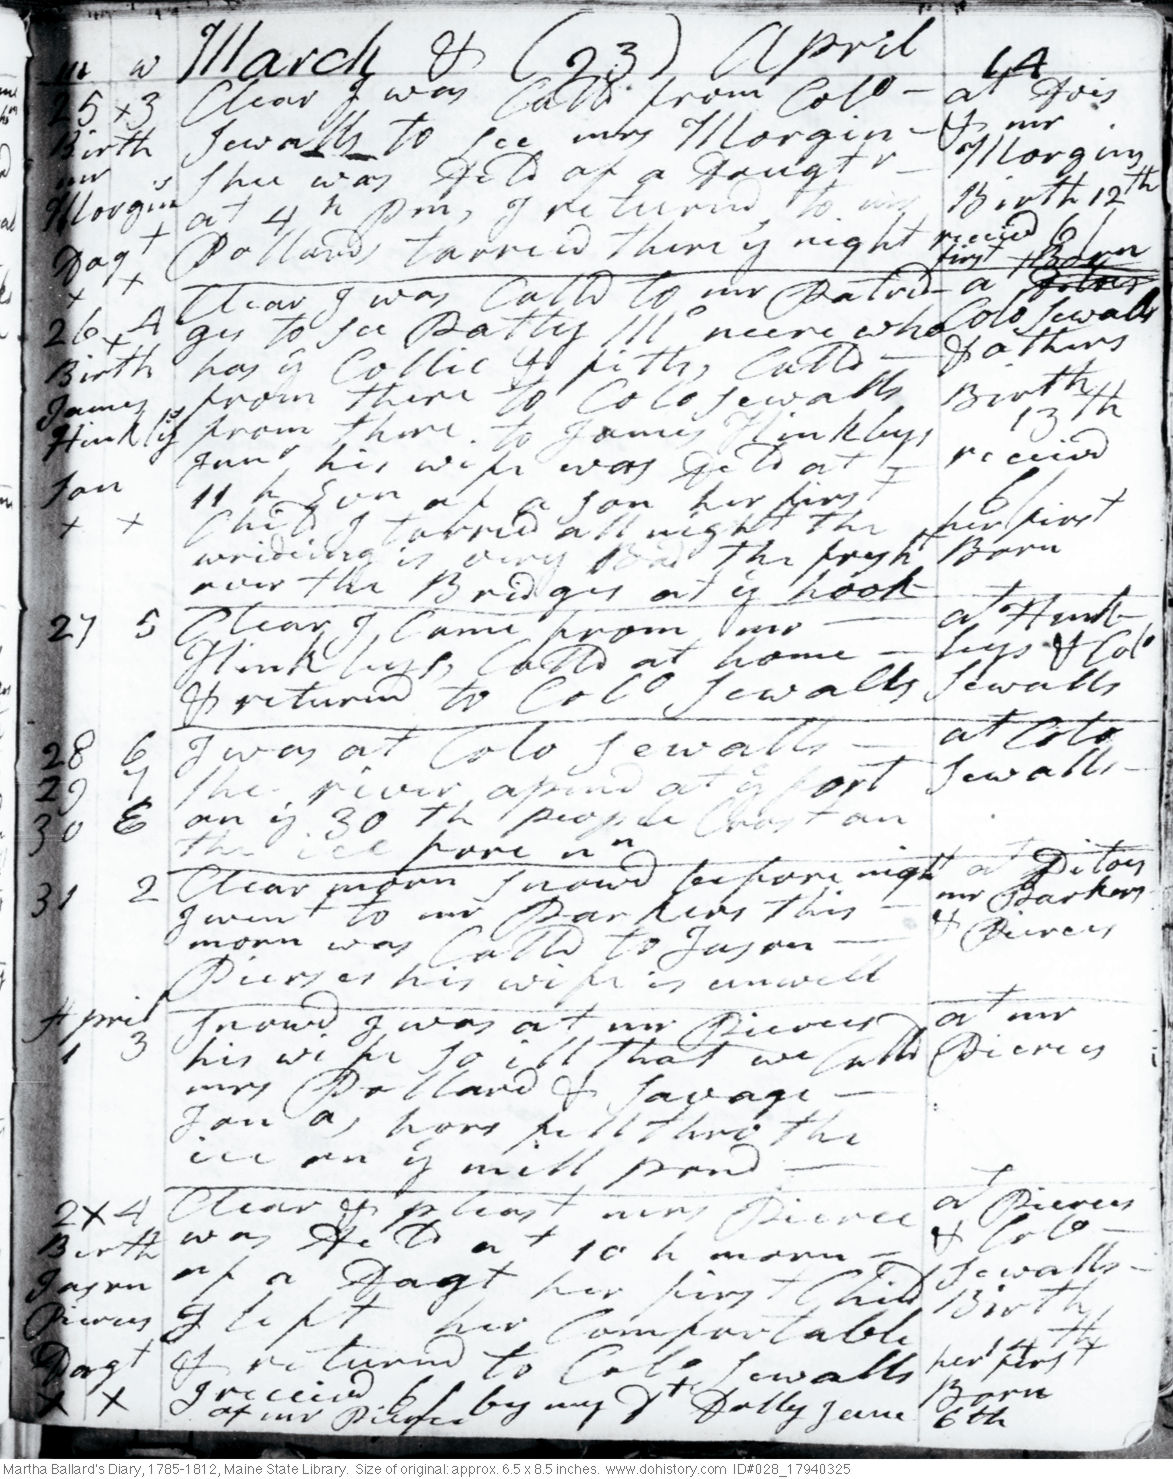 m w March & (23) April 14
25 x 3 Clear I was Calld from Colo - at Do is
Birth Sewalls to see mrs Morgin - & mr
mr Shee was Deld of a Dougtr - Morgins
Morgin's at 4 h pm, I returnd to mr Birth 12th
Dagt + Pollards tarried there ye night receivd 6/
x x first Born
Clear I was Calld to mr Patrid- a
26 x 4 ges to see Patty Mc neere who Colo Sewalls
Birth has ye Collic & fitts, Calld & others
James from there to Colo Sewalls Birth
Hinklys from there to James Hinkleys 13th
Junr, his wife was Deld at received
Son 11 h Evn of a son her first 6/
x x Child I tarried all night the her first
wrideing is very Bad the fresht Born
over the Bridges at ye hook
27 5 Clear I Came from mr at Hink-
Hinkleys, Calld at home - leys & Colo
& returnd to Colo Sewalls Sewalls
28 6 I was at Colo Sewalls at Colo
29 7 the river opend at ye fort Sewalls -
30 E on ye 30 th people Crost on
the ice fore nn
31 2 Clear morn snowd before night at Ditoes
I went to mr Parkers this - mr Barkers
morn was Calld to Jason & Pierces
Pierses his wife is unwell
April Snowd I was at mr Pierces at mr
1 3 his wife so ill that we Calld Pierces
mrs Pollard & Savage -
Jonas hors fell thro the
ice on ye mill pond -
2 x 4 Clear & pleast mrs Pierce at Pierces
Birth was Deld at 10 h morn - & Colo
Jason of a Dagt her first Child Sewalls -
Pierces I left her Comfortable Birth
Dagt & returnd to Colo Sewalls 14th
x x I receivd 6/ by my Dt Dolly June her first
of mr Pierce Born
6th
Martha Ballard's Diary, 1785-1812, Maine State Library. Size of original: approx. 6.5 x 8.5 inches. www.dohistory.com ID#028_17940325